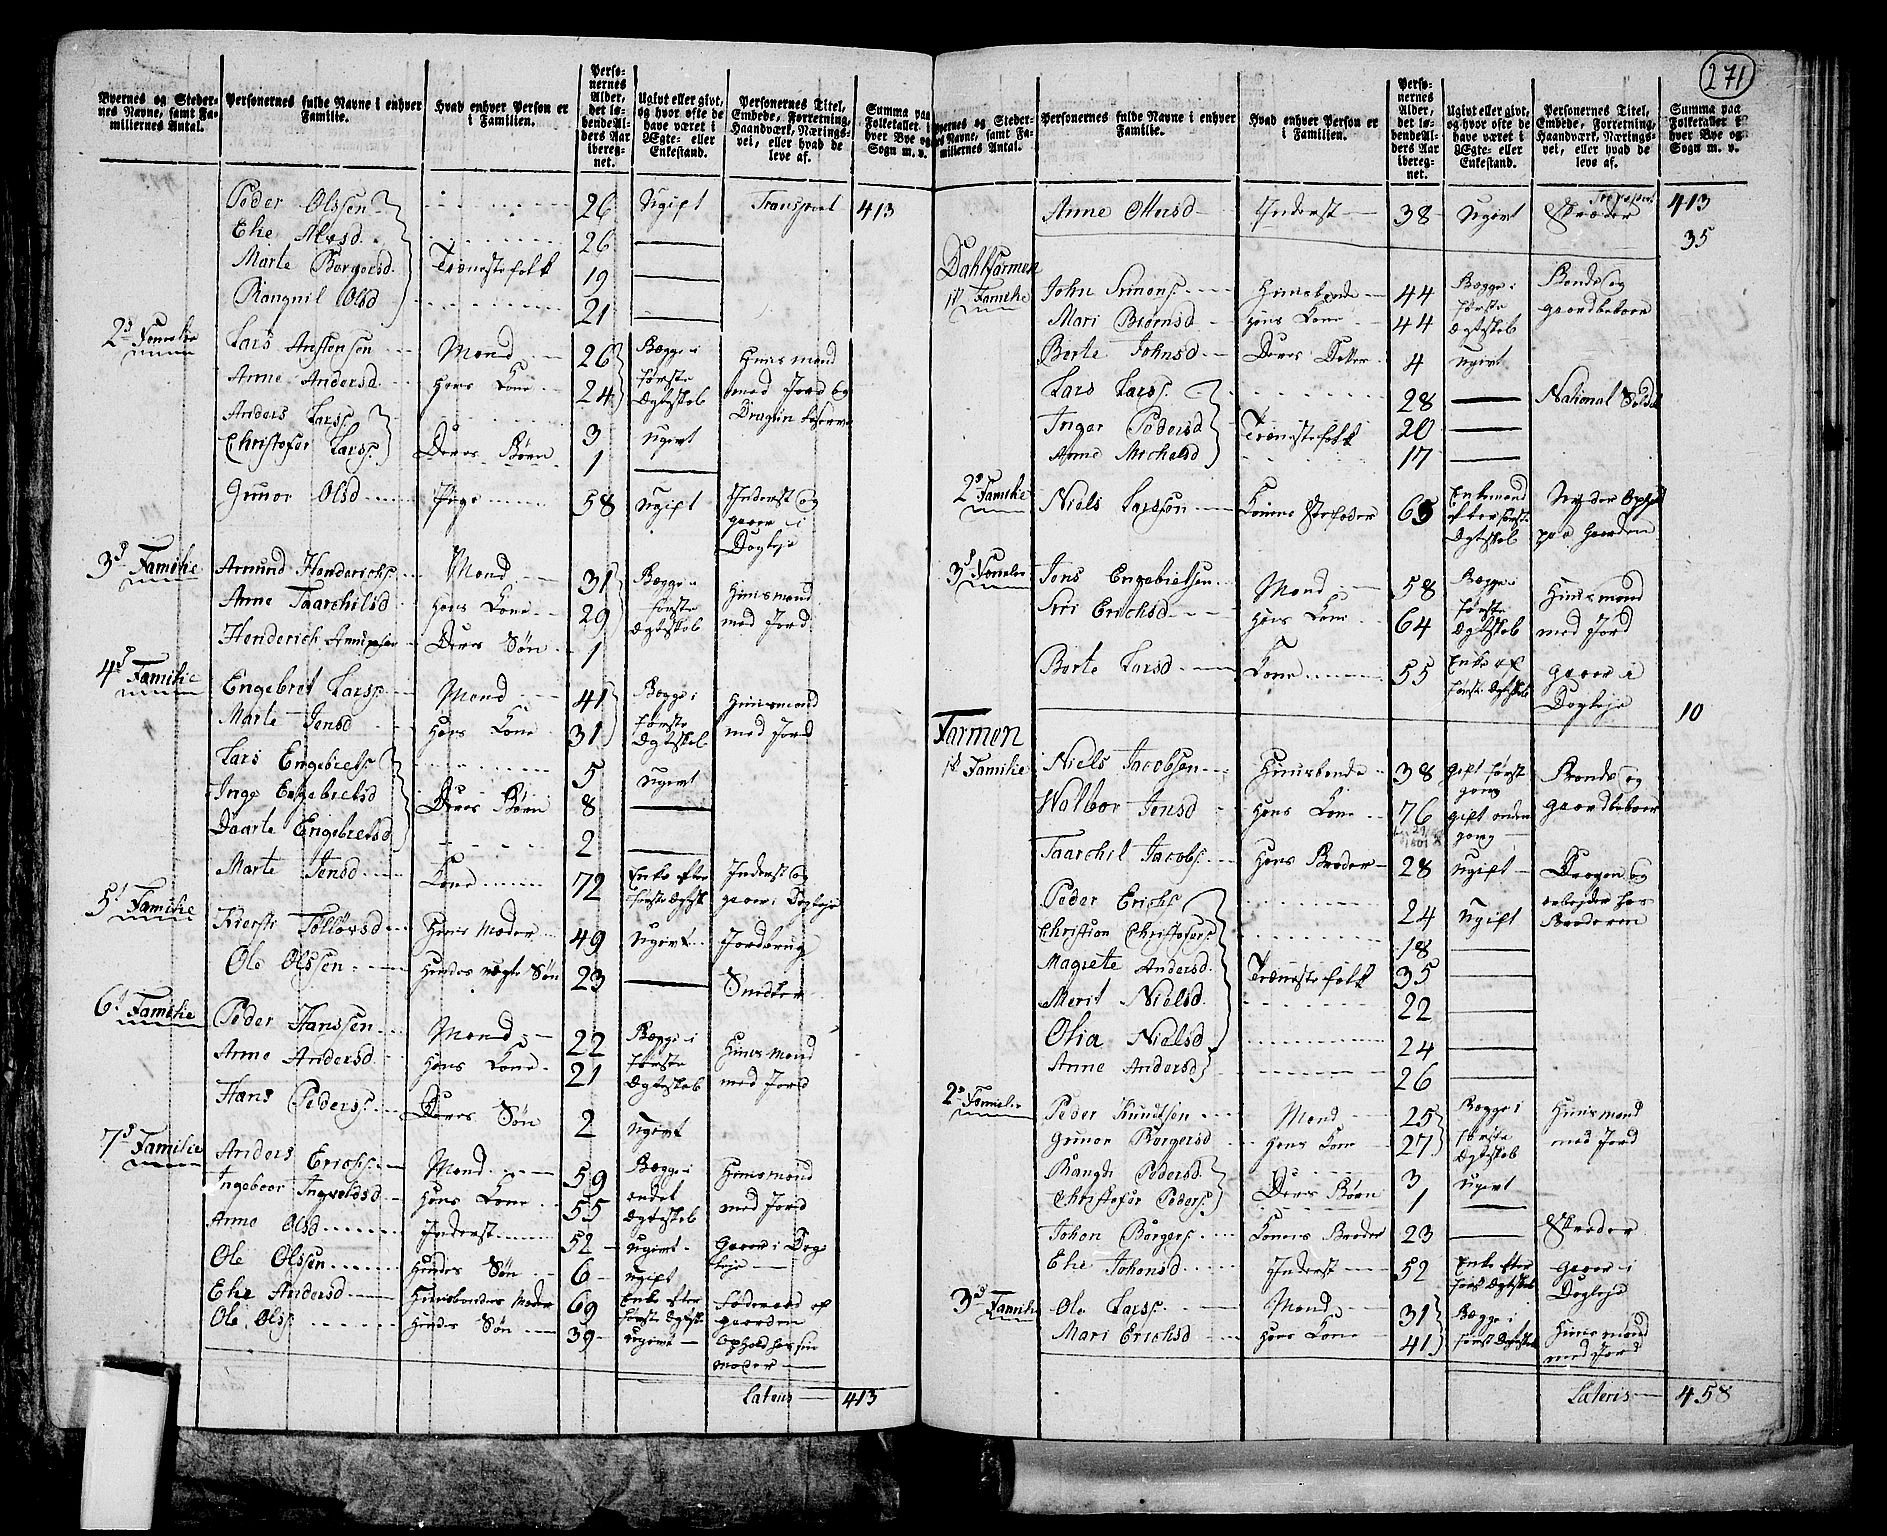 271
Byernes og Stedernes Navne, samt Familiernes Antal.
Personernes fulde Navne i enhver Familie.
Hvad enhver Person er i Familien.
Personernes Alder, det løbende Alders Aar iberegnet.
Ugivt eller givt, og hvor ofte de have været i Ægte- eller Enkestand.
Personernes Titel, Embede, Forretning, Haandværk, Næringsvei, eller hvad de leve af.
Summa paa Folketallet i hver Bye og Sogn m. v.
Peder Olssen 26 Ugift Transport 413
Ehe Alvsd. 26
Marte Borgersd. Tienestefolk 19
Rangnil Olsd 21
2d Familie Lars Anstensen Mand 26 Begge i Huusmand
Anne Andersd. Hans Kone 24 første Ægteskab med Jord og
Anders Larss. 3 ugivt
Christofer Larss. Deres Børn 1
Gunor Olsd Pige 58 Ugift Inderst og gaaer i Dagleje
3d Familie Amund Henderichs. Mand 31 Begge i Huusmand
Anne Taarchilsd Hans Kone 29 første Ægteskab med Jord
Henderich Deres Søn 1
4d Familie Engebret Larss. Mand 41 Begge i Huusmand
Marte Jensd Hans Kone 31 første Ægteskab med Jord
Lars Engebrets. 5 ugivt
Inge Engebretsd Deres Børn 8
Daarte Engebretsd 2
Marte Jensd Kone 72 Enke efter første Ægtesk. Inderst og gaaer i Dagleje
5d Familie Kiersti Tolløvsd Huus Moder 49 Ugivt Jordbrug
Ole Olssen Hendes uægte Søn 23 Snidker
6d Familie Peder Hanssen Mand 22 Begge i Huusmand
Anne Andersd Hans Kone 21 første Ægteskab med Jord
Hans Peders. Deres Søn 2 ugivt
7d Familie Anders Erichs. Mand 59 Begge i Huusmand
Ingeboer Ingvoldsd Hans Kone 55 andet Ægteskab med Jord
Anne Olsd Inderst 52 Ugivt Gaaer i Dagleje
Ole Olssen Hendes Søn 6 ugift
Ehe Andersd Huusbondens Moder 69 Enke efter første Ægtesk. Føderaad af gaarden
Ole Olss. Hendes Søn 39 ugivt Ophold hos sin moder
Lateris 413
Byernes og Stedernes Navne, samt Familiernes Antal.
Personernes fulde Navne i enhver Familie.
Hvad enhver Person er i Familien.
Personernes Alder, det løbende Alders Aar iberegnet.
Ugivt eller givt, og hvor ofte de have været i Ægte- eller Enkestand.
Personernes Titel, Embede, Forretning, Haandværk, Næringsvei, eller hvad de leve af.
Summa paa Folketallet i hver Bye og Sogn m. v.
Transport 413
Anne Inderst 38 Ugivt Skreder
35
Dahlfarmen
1d Familie John Simons. Huusbonde 44 Begge i Bonde og
Mari Biørnsd Hans Kone 44 første Ægteskab gaardbeboer
Berte Johnsd Deres Datter 4 ugivt
Lars Larss. 28 National Soldat
Inger Pedersd Tienestefolk 20
Anne Michelsd 17
2d Familie Niels Larssøn Konens Stifader 65 Enkemand efter første Ægteskab Nyder Ophold paa Gaarden
3d Familie Jens Engebretsen Mand 58 Begge i Huusmand
Siri Erichsd Hans Kone 64 første Ægteskab med Jord
Berte Larsd Kone 55 Enke af første Ægteskab gaaer i Dagleje
10
Farmen
1d Familie Niels Jacobsen Huusbonde 38 gift første gang Bonde og
Wolbor Jensd Hans Kone 76 gift anden gang gaardbeboer
Taarchil Jacobs. Hans Broder 28 Ugift Dragon og arbejder hos Broderen
Peder Erichs. 24 Ugift
Christian Christofers. 18
Magrete Andersd. Tienestefolk 35
Merit Nielsd 22
Olia Nielsd 24
Anne Andersd 26
2d Familie Peder Knudtsen Mand 25 Begge i Huusmand
Gunor Borgersd Hans Kone 27 første Ægteskab med Jord
Rangdi Pedersd 3 ugivt
Christofer Peders. Deres Børn 1
Johan Borgers. Konens Broder 23 Skreder
Ehe Johansd Inderst 52 Enke efter først Ægteskab gaaer i Dagleje
3d Familie Ole Larss. Mand 31 Begge i Huusmand
Mari Erichsd Hans Kone 41 først Ægteskab med Jord
Lateris 458